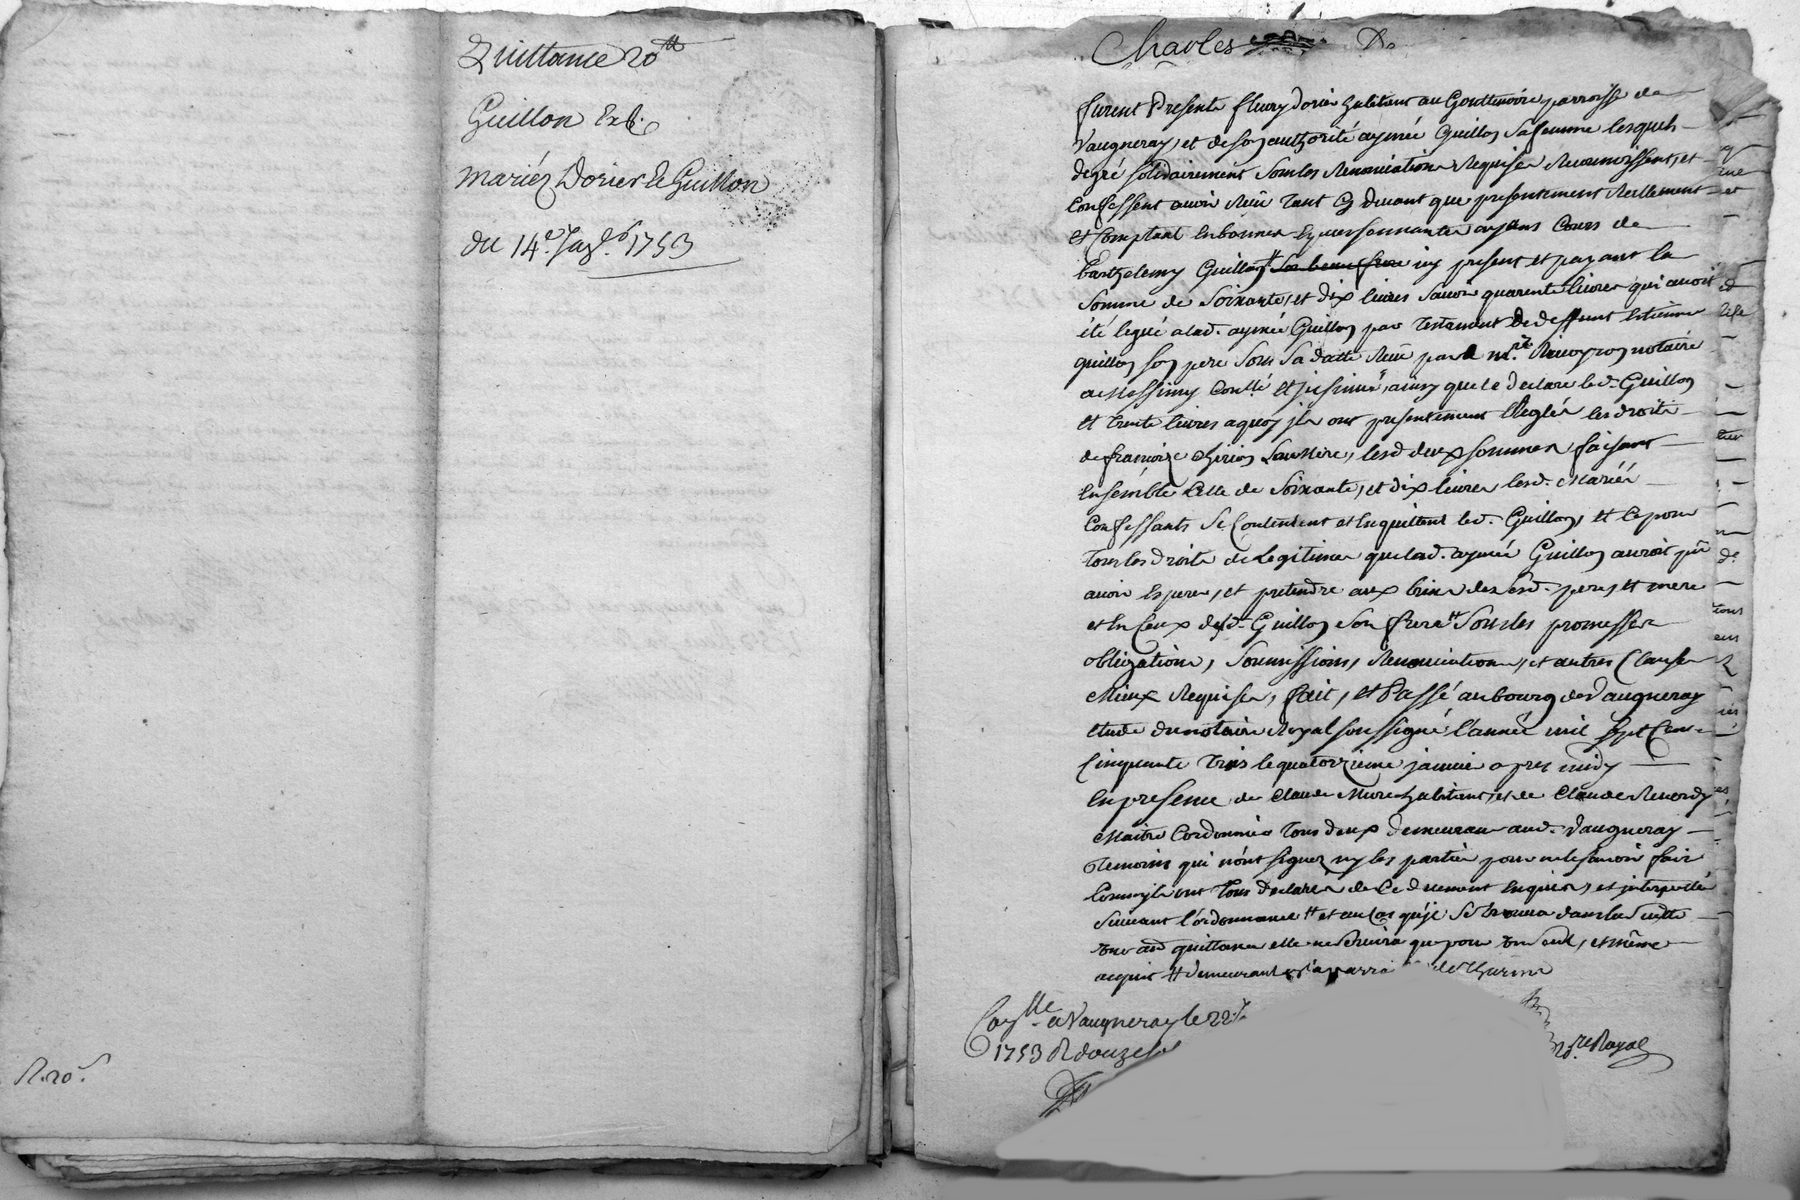 Quittance 70tt
Guillon Exp.
mariéz Dorier & Guillon
du 14e. Janv. 1753
R. 20s.
Charles
furent Presents fleury dorier habitant au Gouttenoire parroisse de
Vaugneray, et de son authorité aymée Guillon sa femme lesquels
degré solidairement sous les Renonciations Requises Reconnoissent, et
Confessent avoir Reçu tant cy devant que presentement Reellement
et Comptant en bonnes Especes sonnantes ayans Cours de
barthelemy Guillon # son beau frere icy present et payant la
somme de soixante, et dix livres savoir quarente livres qui avoit
été legué a lad. aymée Guillon par testament de deffunt Estienne
guillon son pere sous sa datte Reçu par me. notaire
a Messimy Conllé et insinué, ainsy que le declare led. Guillon
et trente livres a quoy ils ont presentement Reglés les droits
de françoize leur Mere, lesd deux sommes faisant
ensemble Celle de soixante, et dix livres lesd. Mariés
Confessants se Contentent et en quittent led. Guillon, et ce pour
tous les droits de Legitimes que lad. aymée Guillon auroit pû
avoir esperer, et pretendre aux biens desd. pere, et mere
et en Ceux dud. Guillon son frere # sous les promesses
obligations, soumissions, Renonciations, et autres Clauses
Mieux Requises, fait, et Passé au bourg de Vaugneray
etude du notaire Royal soussigné l'année mil sept Cent
Cinquante trois le quatorzieme janvier apres midy
En presence de Claude Mure habitant, et de Claude
Maître Cordonnier tous deux demeurant aud. Vaugneray
temoins qui n'ont signez ny les parties pour ne le savoir faire
Comme ils ont tous declarés de Ce duement enquis, et interpellés
suivant l'ordonnance # et au Cas qu'il se trouva dans la suitte
une quittance elle ne servira que pour un seul, et même
acquit # demeurant
Conlle. a Vaugneray le 22
1753 R douze sols
nore Royal